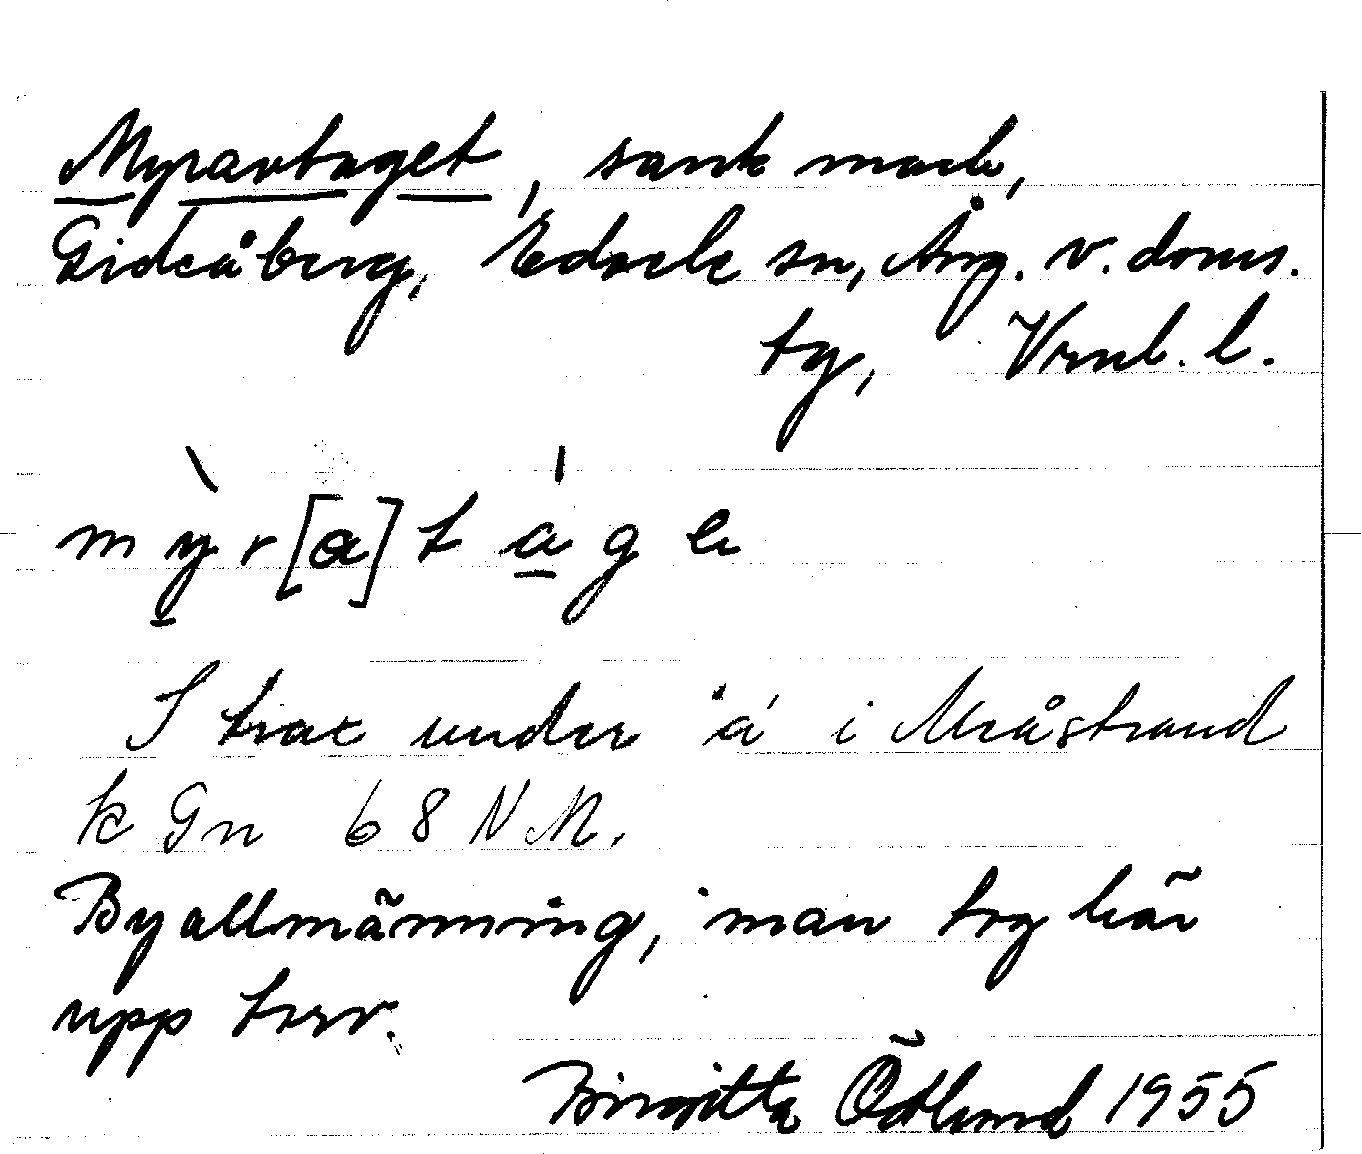 Myravtaget, sank mark,
Gideåberg, Edsele sn, Ång. v. doms.
tg, Vrnl. l.
m ỳ̱ r [a] t a̱̍ g e
I trax under "a" i Meåstrand
k Gn 68 NM.
Byallmänning, man tog här
upp torv.
Birgitta Östlund 1955